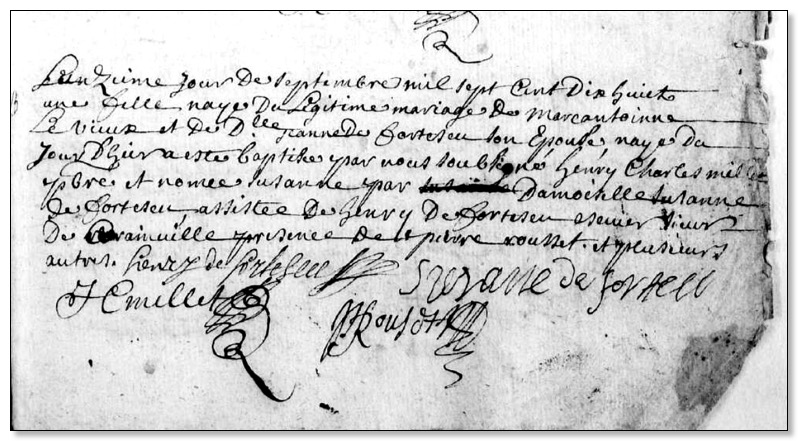 Lonzieme jour de septembre mil sept cent dix huict
une fille naye du legitime mariage de marcantoinne
Le vieux et de Dlle jeanne de fortescu son Epouse, naye du
jour dhier a este baptisée par nous soubsigné henry Charles millet
pbre et nomée susanne par Damoiselle susanne
de fortescu, assistee de henry de fortescu escuier sieur
De presence de pierre rousset et plusieurs
autres. henry de fortescu
Susane de fortescu
H C millet
P Rousset